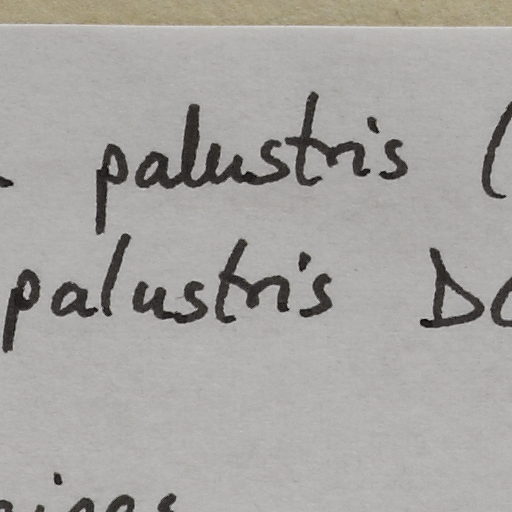 palustris (
palustris DC